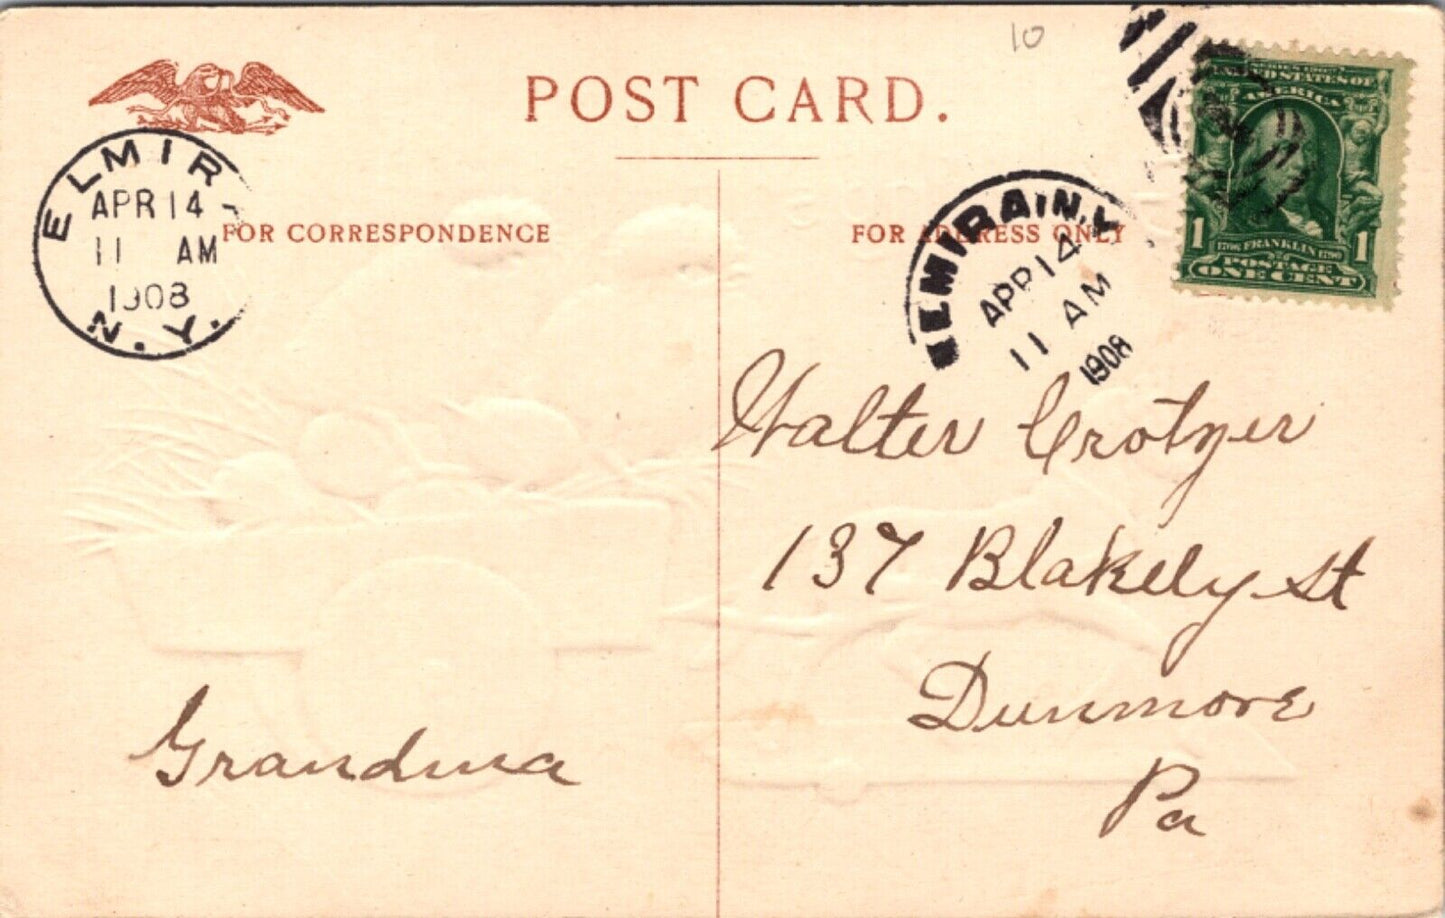 10
POST CARD.
ELMIR
APR 14
11 AM
1908
N. Y.
FOR CORRESPONDENCE
Grandma
FOR ADDRESS ONLY
ELMIRA, N.Y.
APR 14
11 AM
1908
SERIES 1902
UNITED STATES OF
AMERICA
1 1
1706 FRANKLIN 1790
POSTAGE
ONE CENT
Walter Crotzer
137 Blakely St
Dunmore
Pa